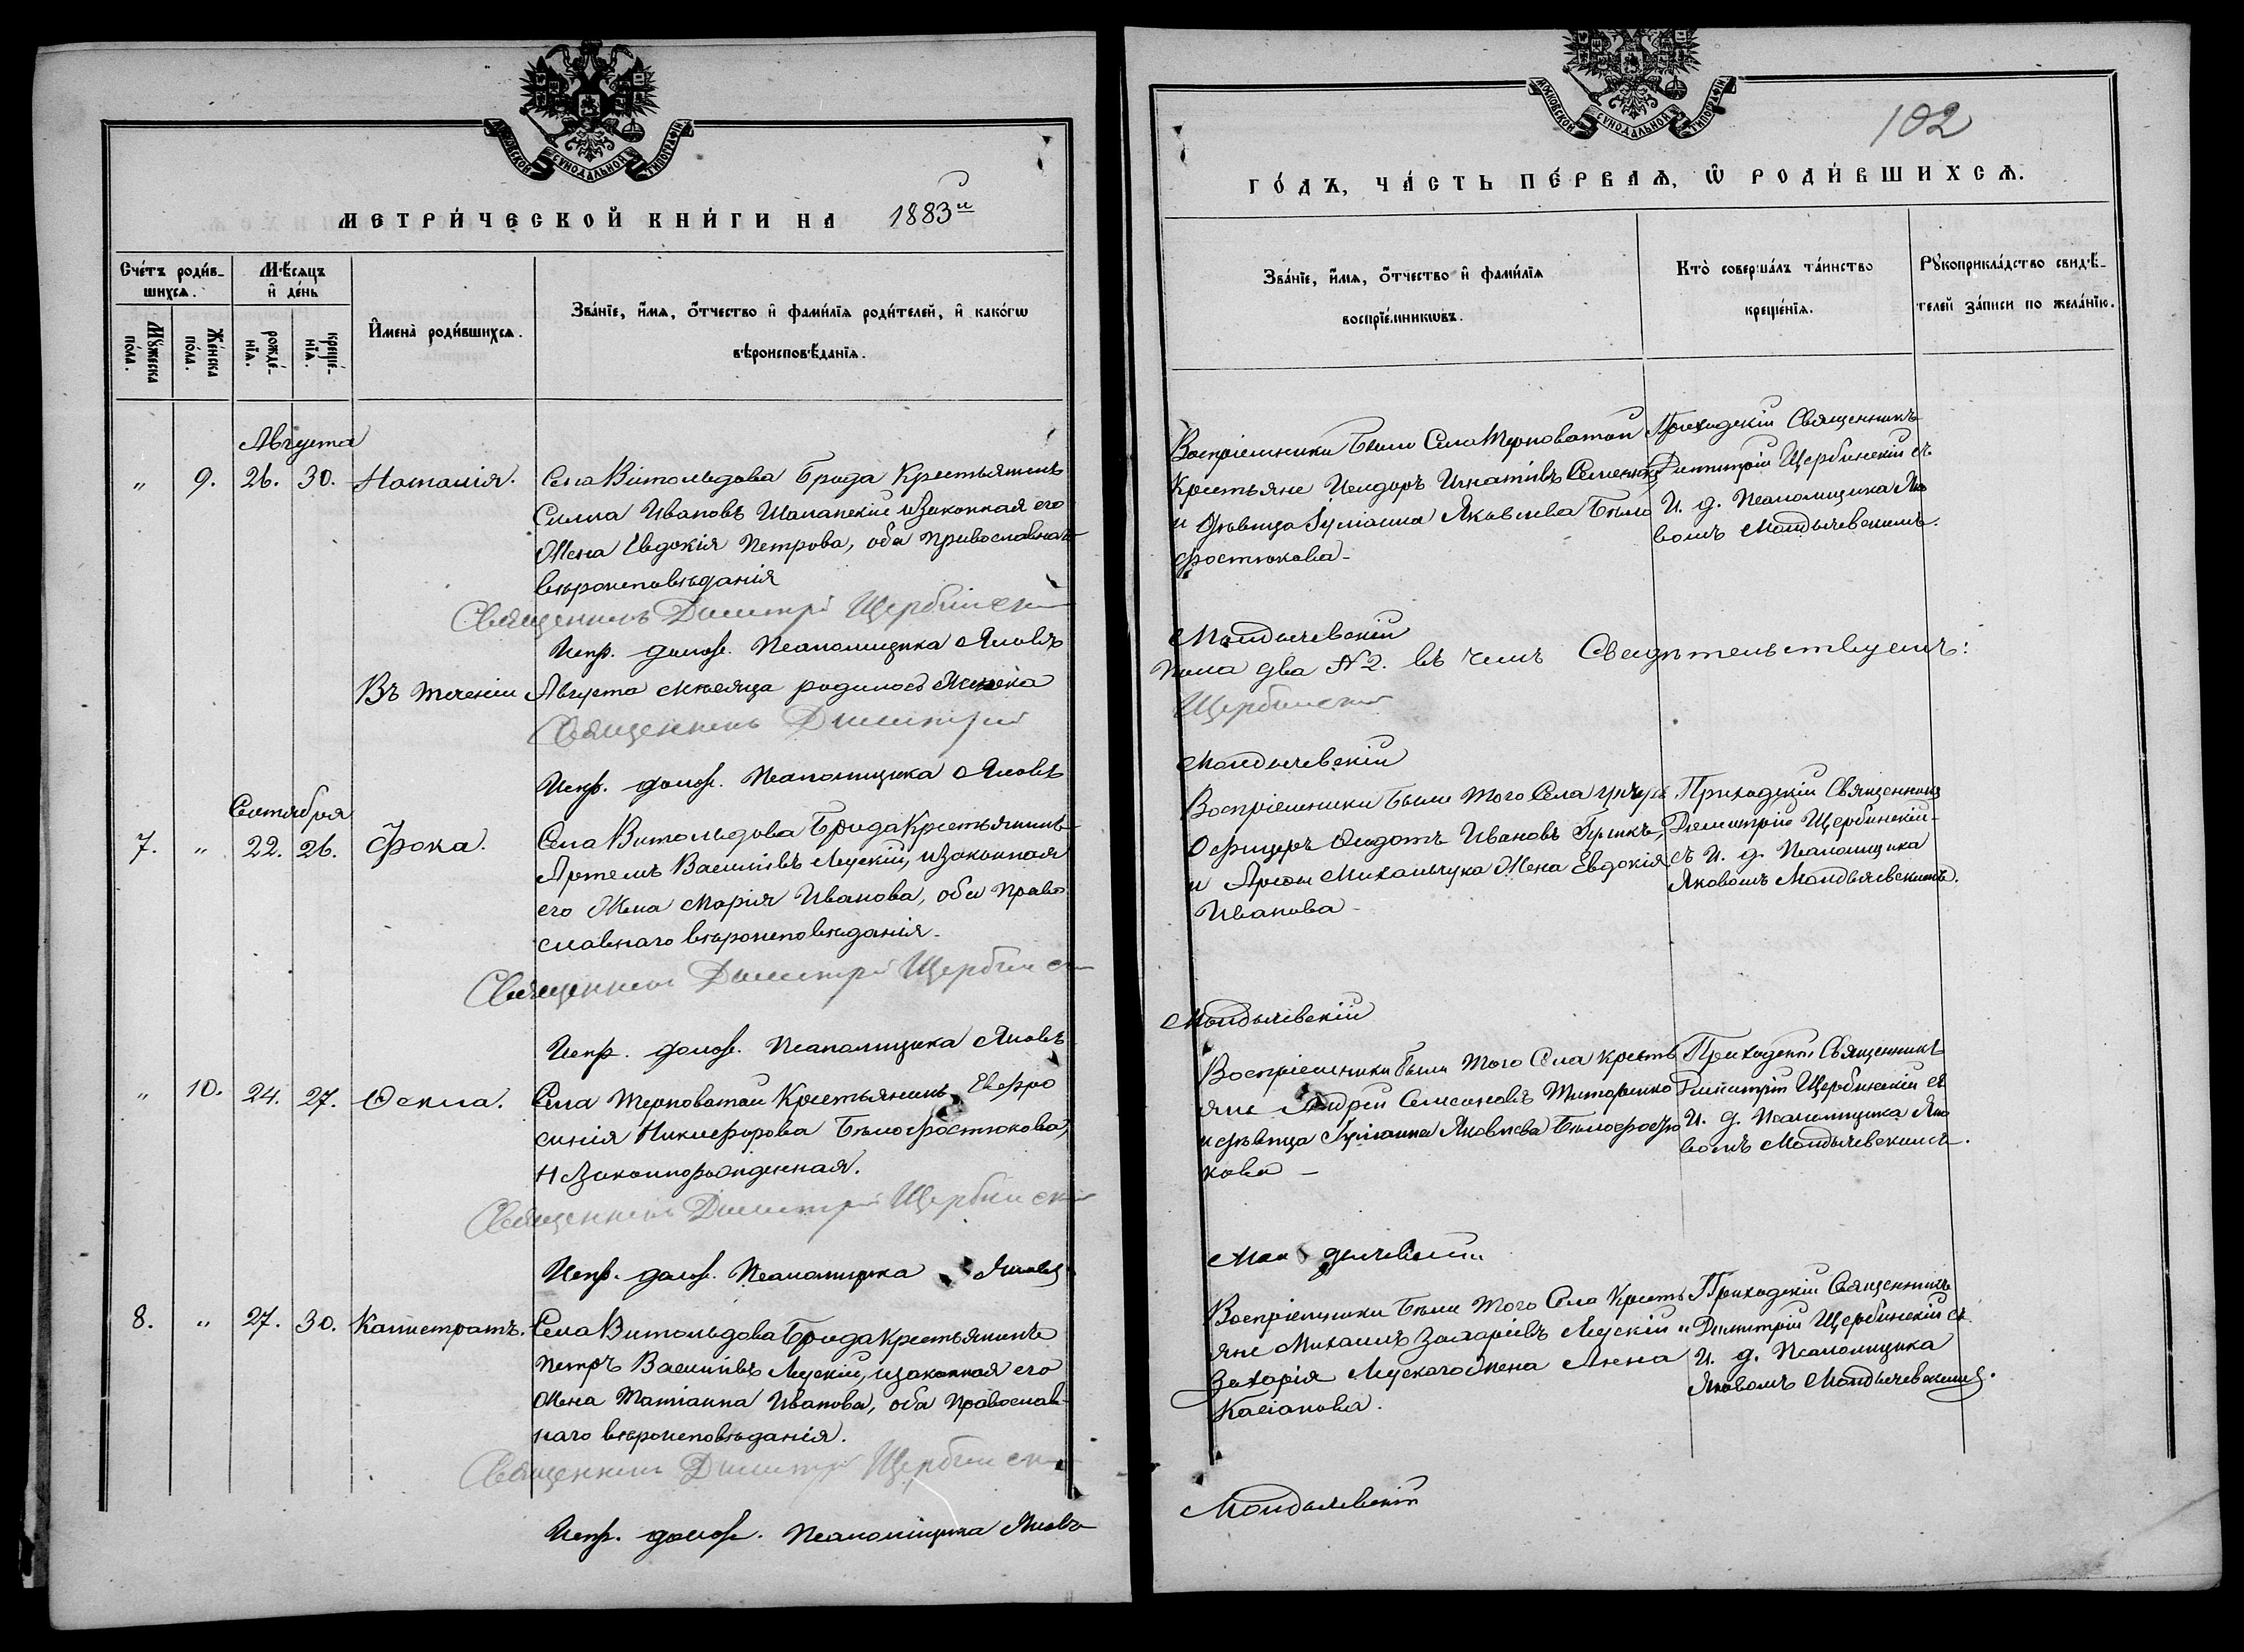 МОСКОВСКОЙ СУНОДАЛЬНОЙ ТИПОГРАФІИ
МЕТРИ́ЧЕСКОЙ КНИ́ГИ НА 1883й
Сче́тъ роди́в-
шихсѧ.
Мѣ́сяцъ
и҆ де́нь
Мꙋ́жеска по́ла.
Же́нска по́ла.
рожде́-
нїѧ.
креще́-
нїѧ.
И҆мена̀ роди́вшихсѧ.
Зва́нїе, и҆́мѧ, ѻ҆́тчество и҆ фами́лїѧ роди́телей, и҆ како́гѡ
вѣроисповѣ́данїѧ.
Августа
„ 9. 26. 30. Наталія. Села Витольдова Брода Крестьянинъ
Силла Ивановъ Шапапскій и Законная его
Жена Евдокія Петрова, оба православнаго
вѣроисповѣданія
Священникъ Димитрій Щербинскій
Испр. долж. Псаломщика Яковъ
Въ теченіи Августа мѣсяца родилось Женска
Священникъ Димитрій
Испр. долж. Псаломщика Яковъ
Сентября
7. „ 22. 26. Фока. Села Витольдова Брода Крестьянинъ
Артемъ Василіивъ Лускій, и законная
его Жена Марія Иванова, оба право
славнаго вѣроисповѣданія.
Священникъ Димитрій Щербинскій
Испр. долж. Псаломщика Яковъ
„ 10. 24. 27. Ѳекла. Села Терноватой Крестьянинъ Евфро
синія Никифорова Бѣлофостюкова,
Незаконнорожденная.
Священникъ Димитрій Щербинскій
Испр. долж. Псаломщика Яковъ
8. „ 27. 30. Каллистратъ. Села Витольдова Брода Крестьянинъ
Петръ Василіивъ Лускій, и законная его
Жена Татіанна Иванова, оба Православ-
наго вѣроисповѣданія.
Священникъ Димитрій Щербинскій
Испр. долж. Псаломщика Яковъ
МОСКОВСКОЙ СУНОДАЛЬНОЙ ТИПОГРАФІИ
102
ГО́ДЪ, ЧА́СТЬ ПЕ́РВАѦ, Ѡ҆ РОДИ́ВШИХСѦ.
Зва́нїе, и҆́мѧ, ѻ҆́тчество и҆ фами́лїѧ
воспрїе́мникѡвъ.
Кто̀ соверша́лъ та́инство
креще́нїѧ.
Рꙋкоприкла́дство свидѣ́-
телей за́писи по жела́нїю.
Воспріемники были Села Терноватой
Крестьяне Исидоръ Игнатіивъ Семенко
и дѣвица Іуліанна Яковлева Бѣло
фостюкова-
Приходскій Священникъ
Димитрій Щербинскій съ
И. д. Псаломщика Яко
вомъ Мандычевскимъ.
Мандычевскій
Пола два № 2. въ чемъ Свидѣтельствуемъ:
Щербинскій
Мандычевскій
Воспріемники были того Села
Офицеръ Ѳедотъ Ивановъ
и Михальчука Жена Евдокія
Иванова-
Приходскій Священникъ
Димитрій Щербинскій-
съ И. д. Псаломщика
Яковомъ Мандычевскимъ.
Мандычевскій
Воспріемники были того Села кресть
яне Андрей Семеновъ Титаренко
и дѣвица Іуліанна Яковлева Бѣлофостю
кова -
Приходскій Священникъ
Димитрій Щербинскій съ
И. д. Псаломщика Яко
вомъ Мандычевскимъ.
Мандычевскій
Воспріемники были того Села Кресть
яне Михаилъ Захаріивъ Лускій и
Захарія Лускаго Жена Анна
Касіанова.
Приходскій Священникъ
Димитрій Щербинскій съ
И. д. Псаломщика
Яковомъ Мандычевскимъ.
Мандычевскій